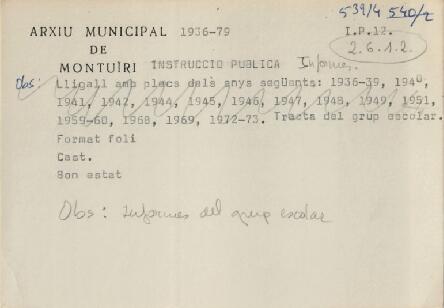 539/4 540/2
ARXIU MUNICIPAL 1936-79 I.P.12.
DE 2.6.1.2.
MONTUÏRI INSTRUCCIO PUBLICA Informes.
Obs: Lligall amb plecs dels anys següents: 1936-39, 1940,
1941, 1942, 1944, 1945, 1946, 1947, 1948, 1949, 1951,
1959-60, 1968, 1969, 1972-73. Tracta del grup escolar.
Format foli
Cast.
Bon estat
Obs: Informes del grup escolar